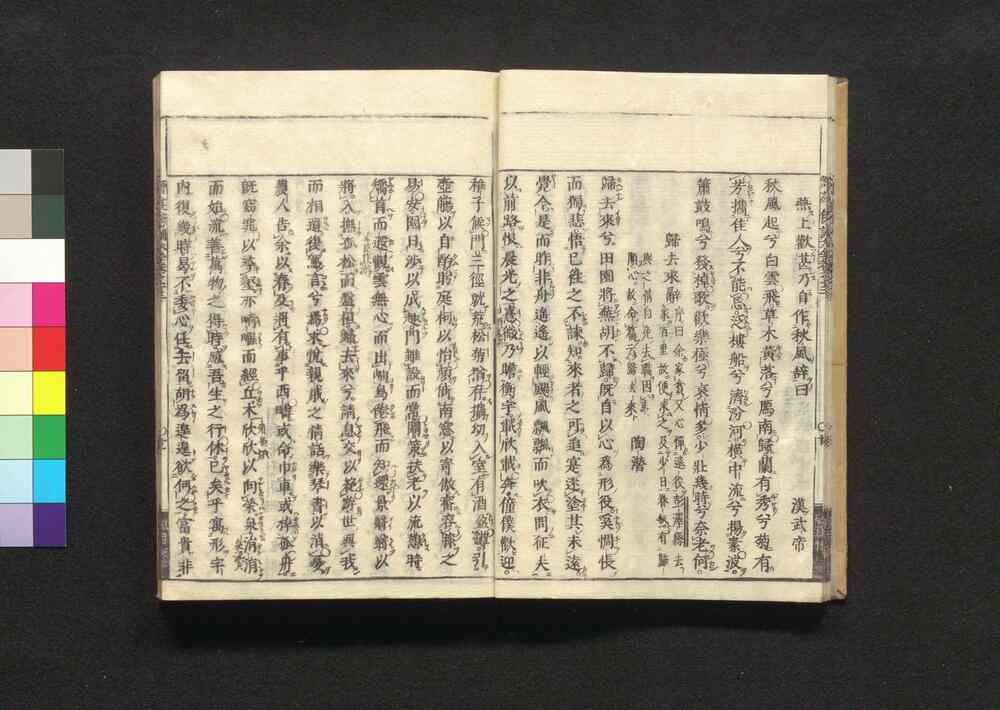 燕上歡甚乃自作秋風辞曰　漢武帝
秋風起兮白雲飛草木黄落兮鴈南歸蘭有秀兮菊有
芳携佳人兮不能忘泛樓船兮濟汾河横中流兮揚素波
簫鼓鳴兮發棹歌歡樂極兮哀情多少壮幾時兮奈老何
歸去來辭　陶潜
序曰余家貧又心憚遠役彭澤縣去
家百里故便求之及少日眷然有歸
與之情自免去職因事
順心故命篇云歸去來
歸去來兮田園將蕪胡不歸既自以心為形役奚惆悵
而獨悲悟已往之不諌知來者之可追寔迷塗其未遠
覺今是而昨非舟遥遥以輕颺風飄飄而吹衣問征夫
以前路恨晨光之憙微乃瞻衡宇載欣載奔僮僕歡迎
稚子候門三徑就荒松菊猶存攜幼入室有酒盈罇引
壺觴以自酌眄庭柯以怡顔倚南窓以寄傲審容膝之
易安園日渉以成趣門雖設而常關策扶老以流憩時
矯首而遐觀雲無心而出岫鳥倦飛而知還景翳翳以
將入撫孤松而盤桓歸去來兮請息交以絶游世與我
而相遺復駕言兮焉求悦親戚之情話樂琴書以消憂
農人告余以春及將有事乎西疇或命巾車或棹孤舟
既窈窕以尋壑亦崎嶇而經丘木欣欣以向榮泉涓涓
而始流善萬物之得時感吾生之行休已矣乎寓形宇
内復幾時曷不委心任去留胡為遑遑欲何之富貴非